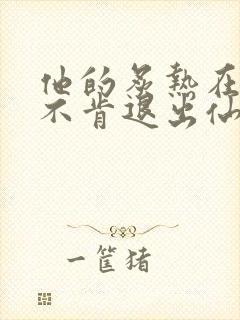 他的炙热在
不肯退出仙
一筐猪